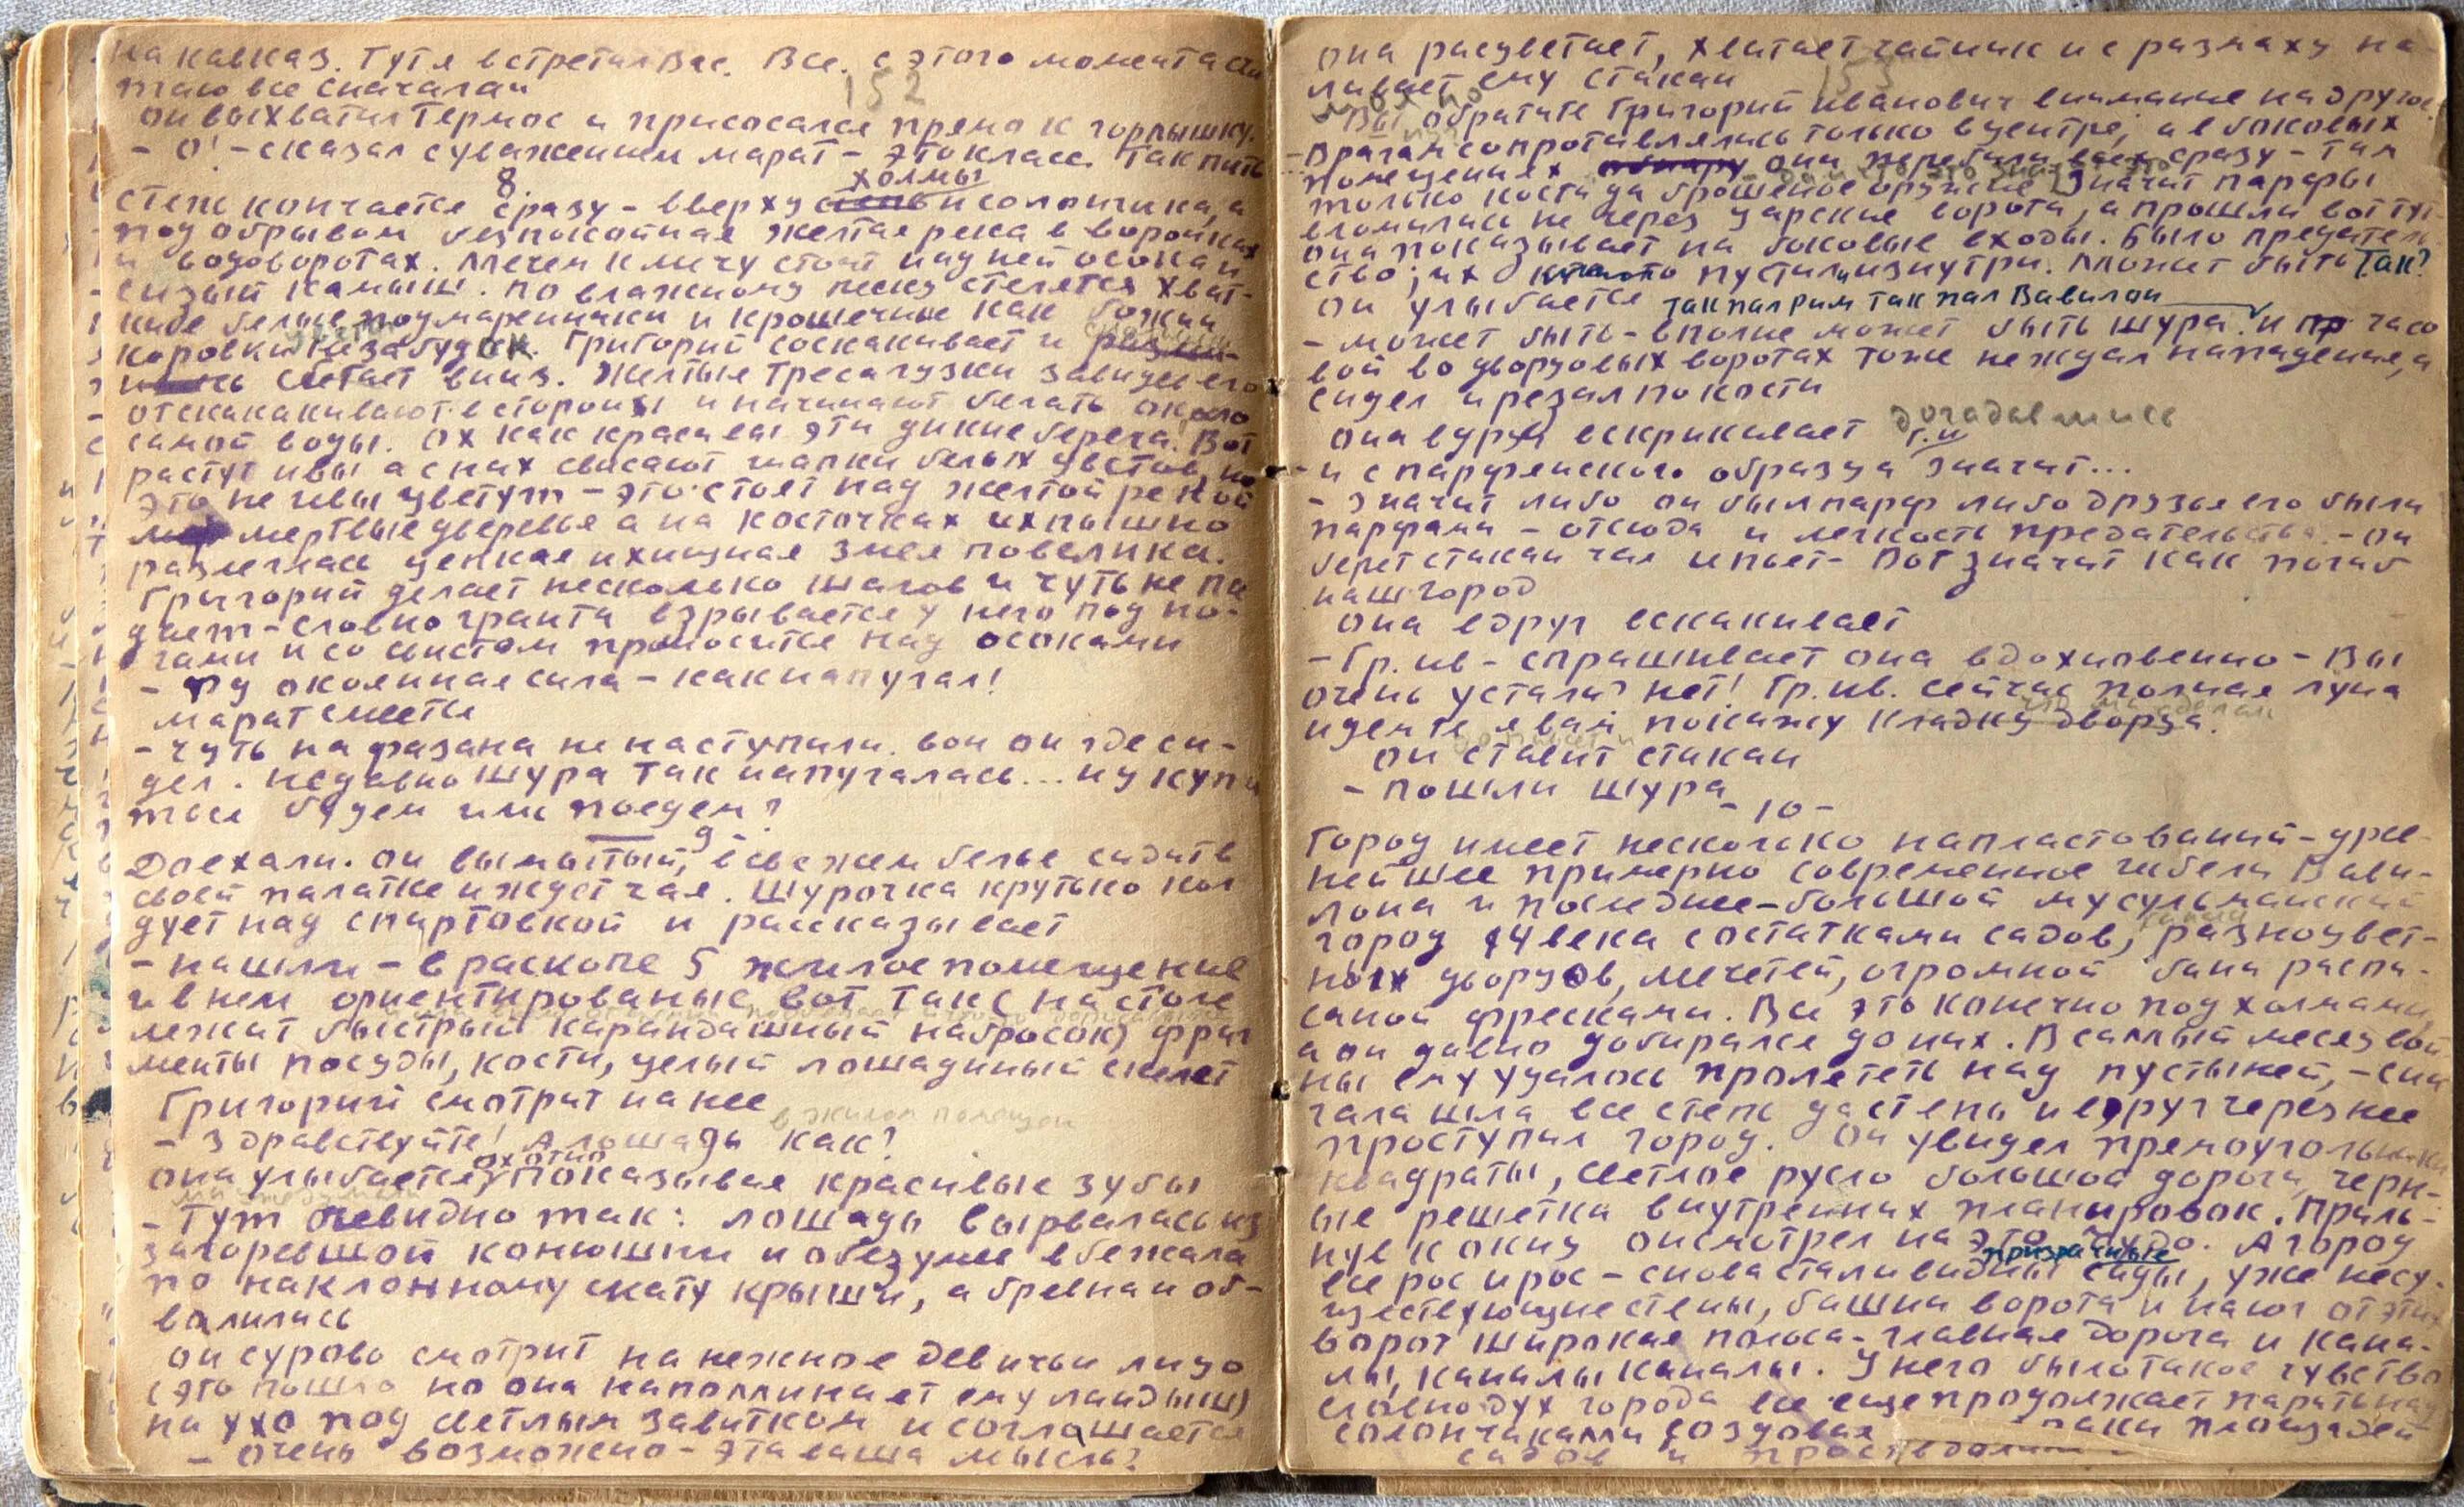 на кавказ. Тут я встретил Вас. Все. с этого момента счи
таю все сначала"
152
он выхватил термос и присосался прямо к горлышку.
- О! - сказал с уважением марат - это класс. Так пить
8.
холмы
степь кончается сразу - вверху степь и солончики, а
под обрывом безпокойная желтая река в воронках
и водоворотах. Мечем к мечу стоит над ней осока и
сизый камыш. по влажному песку стелятся хват-
кие белые подмаренники и крошечные как божьи
цветы
коровки незабудок. Григорий соскакивает и
сбегает вниз. Желтые трясагузки завидев его
отскакакивают в стороны и начинают бегать около
самой воды. Ох как красивы эти дикие берега. Вот
растут ивы а с них свисают шапки белых цветов, но
это не ивы цветут - это стоят над желтой рекой
мертвые деревья а на косточках их пышно
разлеглась цепкая и хищная змея повелика.
Григорий делает несколько шагов и чуть не па
дает - словно граната взрывается у него под но-
гами и со свистом проносится над осоками
- Фу окаянная сила - как напугал!
марат смеется
- чуть на фазана не наступили. вон он где си-
дел. недавно Шура так напугалась... ну купа
ться будем или поедем?
9 -
Доехали. он вымытый, в свежем белье сидит в
своей палатке и ждет чая. Шурочка крутько кол
дует над спиртовкой и рассказывает
- нашли - в раскопе 5 жилое помещение
и в нем ориентированые вот так (на столе
лежит быстрый карандашный набросок) фраг
менты посуды, кости, целый лошадиный скелет
Григорий смотрит на нее
в жилом помещен
- Здравствуйте! А лошадь как?
охотно
она улыбается, показывая красивые зубы
- Тут очевидно так: лошадь вырвалась из
загоревшой конюшни и обезумев вбежала
по наклонному скату крыши, а бревна и об-
валились
он сурово смотрит на нежное девичьи лицо
(это пошло но она напоминает ему ландыш)
на ухо под светлым завитком и соглашается
- очень возможно - эта ваша мысль?
она расцветает, хватает чайник и с размаху на-
ливает ему стакан
153
- Вы обратите Григорий иванович внимание на другое
Врагам сопротивлялись только в центре, а в боковых
помещениях они перебили всех сразу - там
только кости да брошеное оружие. Значит парфы
вломились не через царские ворота, а прошли вот тут
она показывает на боковые входы. Было предатель
ство; их кто-то пустил изнутри. Может быть так?
он улыбается так пал Рим так пал Вавилон
- может быть - вполне может быть шура. и часо
вой во дворцовых воротах тоже не ждал нападения, а
сидел и резал по кости
она вдруг вскрикивает догадавшись
Г. И
- и с парфенского образца значит...
- Значит либо он был парф либо друзья его были
парфами - отсюда и легкость предательства. - он
берет стакан чая и пьет - Вот значит как погиб
наш город
она вдруг вскакивает
- Гр. ив - спрашивает она вдохновенно - Вы
очень устали? нет! Гр. ив. сейчас полная луна
идемте я вам покажу кладку дворца.
он ставит стакан
- пошли шура
- 10 -
Город имеет несколько напластований - древ-
нейшее примерно современное гибели Вави-
лона и последнее - большой мусульманский
город 14 века с остатками садов, разноцвет-
ных дворцов, мечетей, огромной бани распи-
саной фресками. Все это конечно под холмами,
а он давно добирался до них. В самый месяц вой
ны ему удалось пролететь над пустыней, - сна
чала шла все степь да степь и вдруг через нее
проступил город. Он увидел премоугольники
квадраты, светлое русло большой дороги, черн-
ые решетки внутренних планировок. Приль-
нув к окну он смотрел на это чудо. А город
призрачные
все рос и рос - снова стали видны сады, уже несу-
ществующие стены, башни ворота и на юг от этих
ворот широкая полоса - главная дорога и кана-
лы, каналы каналы. У него было такое чувство
словно дух города все еще продолжает парить над
солончаками создавая площадей
садов и